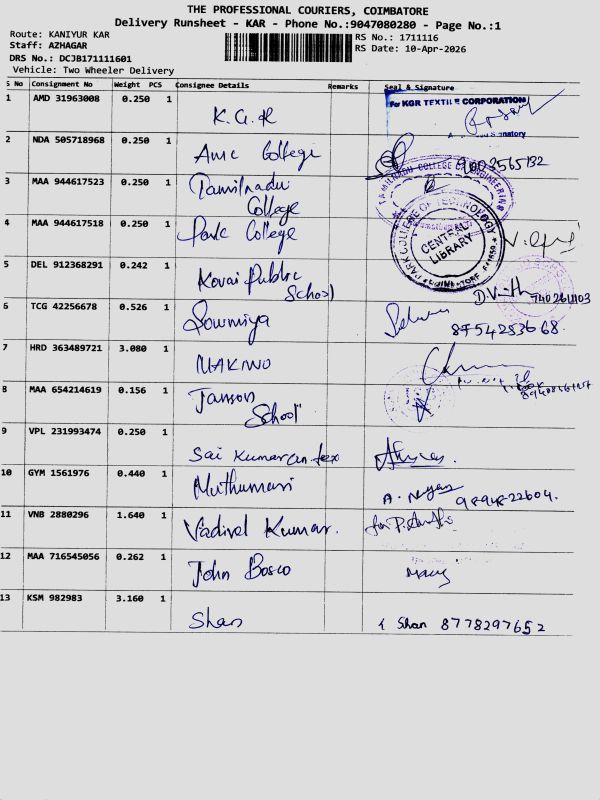 THE PROFESSIONAL COURIERS, COIMBATORE
Delivery Runsheet - KAR - Phone No.:9047080280 - Page No.:1
Route: KANIYUR KAR RS No.: 1711116
Staff: AZHAGAR RS Date: 10-Apr-2026
DRS No.: DCJB171111601
Vehicle: Two Wheeler Delivery
S No Consignment No Weight PCS Consignee Details Remarks Seal & Signature
1 AMD 31963008 0.250 1 K.G.R For KGR TEXTILE CORPORATION
2 NDA 505718968 0.250 1 AMC College
3 MAA 944617523 0.250 1 Tamilnadu College
4 MAA 944617518 0.250 1 Park College CENTRAL LIBRARY
5 DEL 912368291 0.242 1 Kovai Public School
6 TCG 42256678 0.526 1 Sowmiya 8754253668.
7 HRD 363489721 3.080 1 MAKINO
8 MAA 654214619 0.156 1 Janson School
9 VPL 231993474 0.250 1 Sai Kumaran tex
10 GYM 1561976 0.440 1 Muthumari
11 VNB 2880296 1.640 1 Vadivel Kumar.
12 MAA 716545056 0.262 1 John Bosco
13 KSM 982983 3.160 1 Shan Shan 8778297652